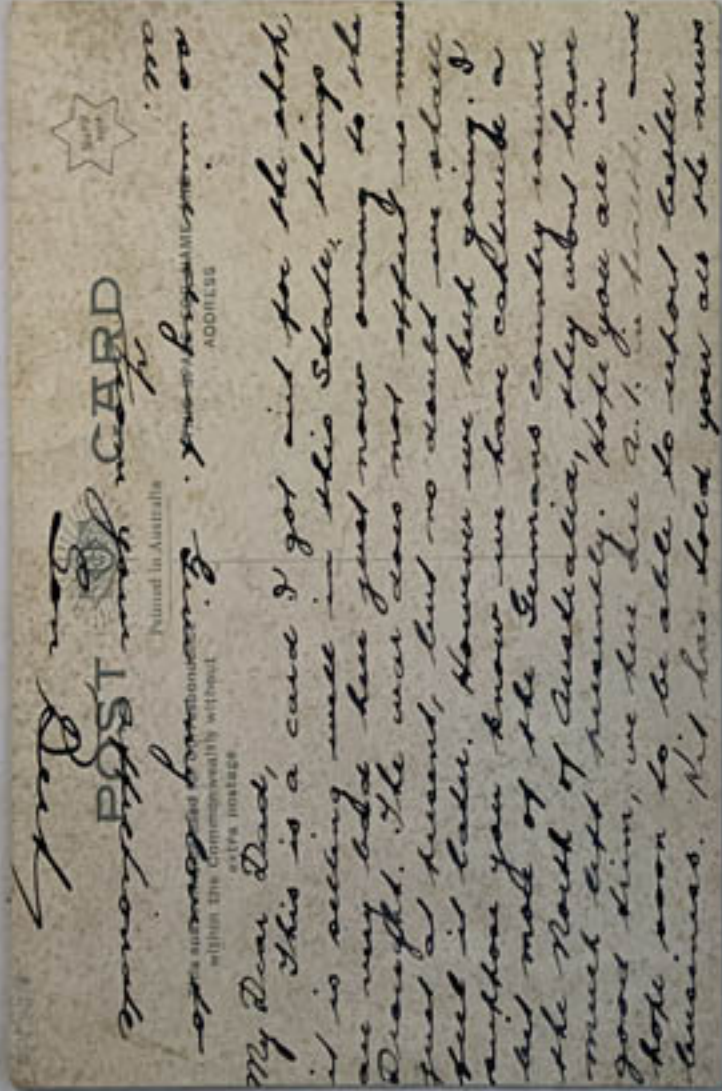 POST CARD
Printed in Australia
within the Commonwealth without
extra postage
NAME
ADDRESS
My Dear Dad,
This is a card I got out for the shop,
it is selling well in this State, things
are very bad here just now owing to the
Drought. The war does not affect us much
just at present, but no doubt we shall
feel it later. However we keep going. I
suppose you know we have captured a
bit more of the Germans country round
the North of Australia, they wont have
much left presently. Hope you are in
good trim, we here are A.1. in health, and
hope soon to be able to report better
business. has told you all the news
so
all.
Your affectionate
Son